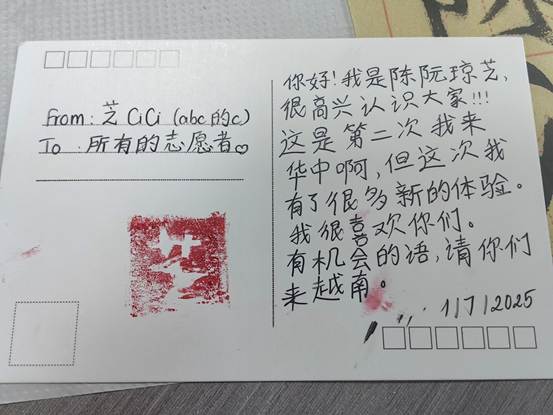 From: 芝 CiCi (abc的c)
To: 所有的志愿者
你好!我是陈阮琼芝,
很高兴认识大家!!!
这是第二次我来
华中啊,但这次我
有了很多新的体验。
我很喜欢你们。
有机会的语,请你们
来越南。
1/7/2025